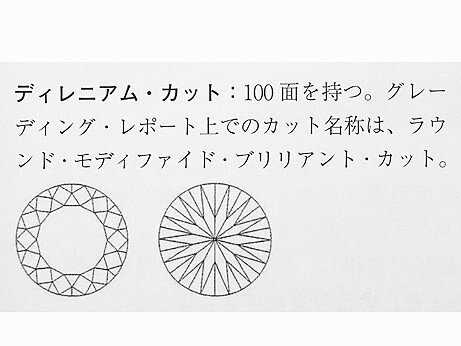 ディレニアム・カット：100 面を持つ。グレー
ディング・レポート上でのカット名称は、ラウ
ンド・モディファイド・ブリリアント・カット。